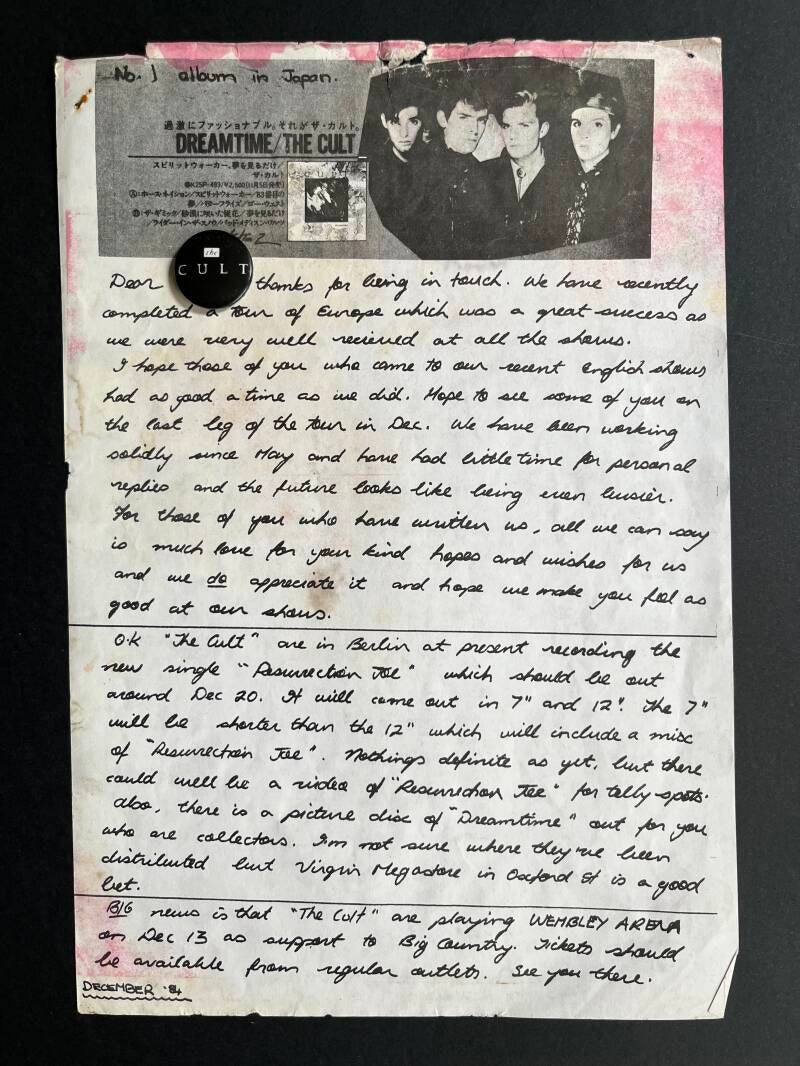 No. 1 album in Japan.
過激にファッショナブル。それがザ・カルト。
DREAMTIME/THE CULT
スピリットウォーカー、夢を見るだけ/
ザ・カルト
●K25P-493/¥2,500(11月5日発売)
Ⓐホース・ネイション/スピリットウォーカー/83番目の
夢/バターフライズ/ゴー・ウェスト
Ⓑザ・ギミック/砂漠に咲いた徒花/夢を見るだけ/
ライダー・イン・ザ・スノウ/バッド・メディスン・ワルツ
the
CULT
Dear thanks for being in touch. We have recently
completed a tour of Europe which was a great success as
we were very well recieved at all the shows.
I hope those of you who came to our recent english shows
had as good a time as we did. Hope to see some of you on
the last leg of the tour in Dec. We have been working
solidly since May and have had little time for personal
replies and the future looks like being even busier.
For those of you who have written us, all we can say
is much love for your kind hopes and wishes for us
and we do appreciate it and hope we make you feel as
good at our shows.
O.K "The Cult" are in Berlin at present recording the
new single "Resurrection Joe" which should be out
around Dec 20. It will come out in 7" and 12". The 7"
will be shorter than the 12" which will include a misc
of "Resurrection Joe". Nothings definite as yet, but there
could well be a video of "Resurrection Joe" for telly spots.
Also, there is a picture disc of "Dreamtime" out for you
who are collectors. I'm not sure where they've been
distributed but Virgin Megastore in Oxford St is a good
bet.
BIG news is that "The Cult" are playing WEMBLEY ARENA
on Dec 13 as support to Big Country. Tickets should
be available from regular outlets. See you there.
DECEMBER '84